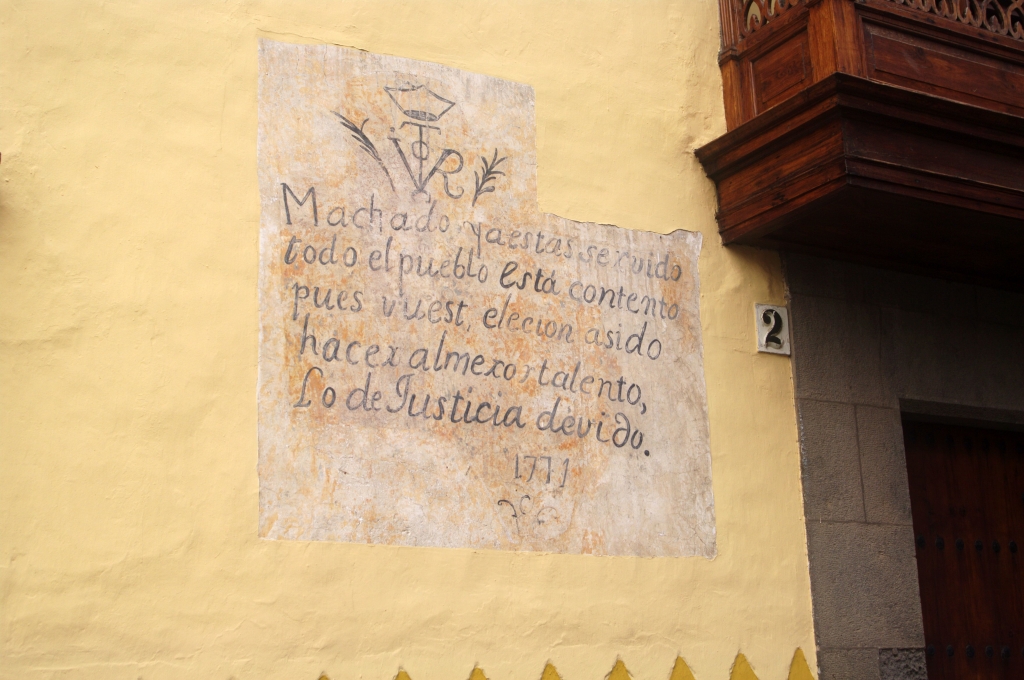 VTOR
Machado, ya estas servido
todo el pueblo está contento
pues vuest, elecion asido
hacer almexor talento,
Lo de Justicia devido.
1771
2